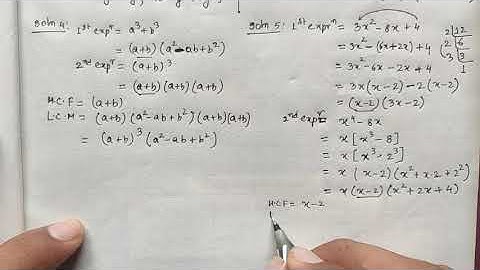 Soln 4: 1st expn = a³+b³
= (a+b)(a²-ab+b²)
2nd expn = (a+b)³
= (a+b)(a+b)(a+b)
H.C.F = (a+b)
L.C.M = (a+b)(a²-ab+b²)(a+b)(a+b)
= (a+b)³(a²-ab+b²)
Soln 5: 1st exprn = 3x²-8x+4
= 3x²-(6x+2x)+4
= 3x²-6x-2x+4
= 3x(x-2)-2(x-2)
= (x-2)(3x-2)
2 12
2 6
3 3
1
2nd exprn = x⁴-8x
= x[x³-8]
= x[x³-2³]
= x(x-2)(x²+x.2+2²)
= x(x-2)(x²+2x+4)
H.C.F = x-2